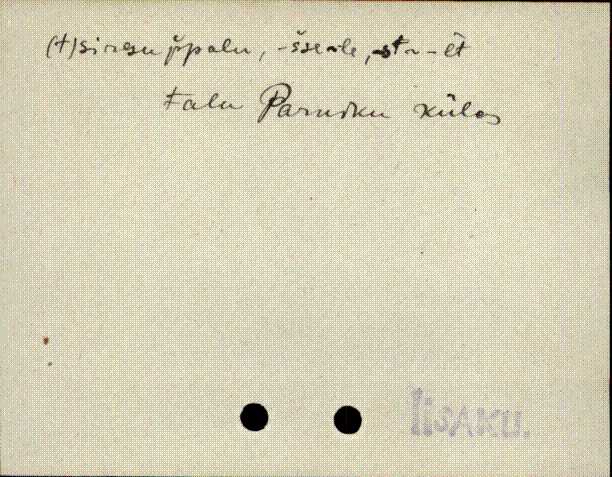 (t)siresu p̆palu, -s̆se-le, -st~-ĕt
talu Parusku külas
IISAKU.